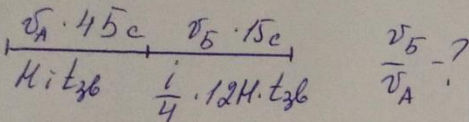 v_A · 45с   v_Б · 15с
Н i t_зв   i/4 · 12Н · t_зв   v_Б/v_A - ?